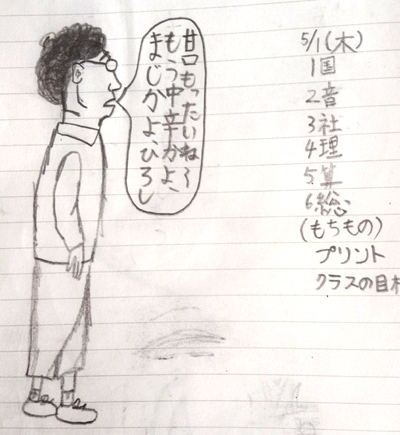 甘口もったいね〜
もう中辛かよ、
まじかよ、ひろし
5/1(木)
1国
2音
3社
4理
5算
6総
(もちもの)
プリント
クラスの目標